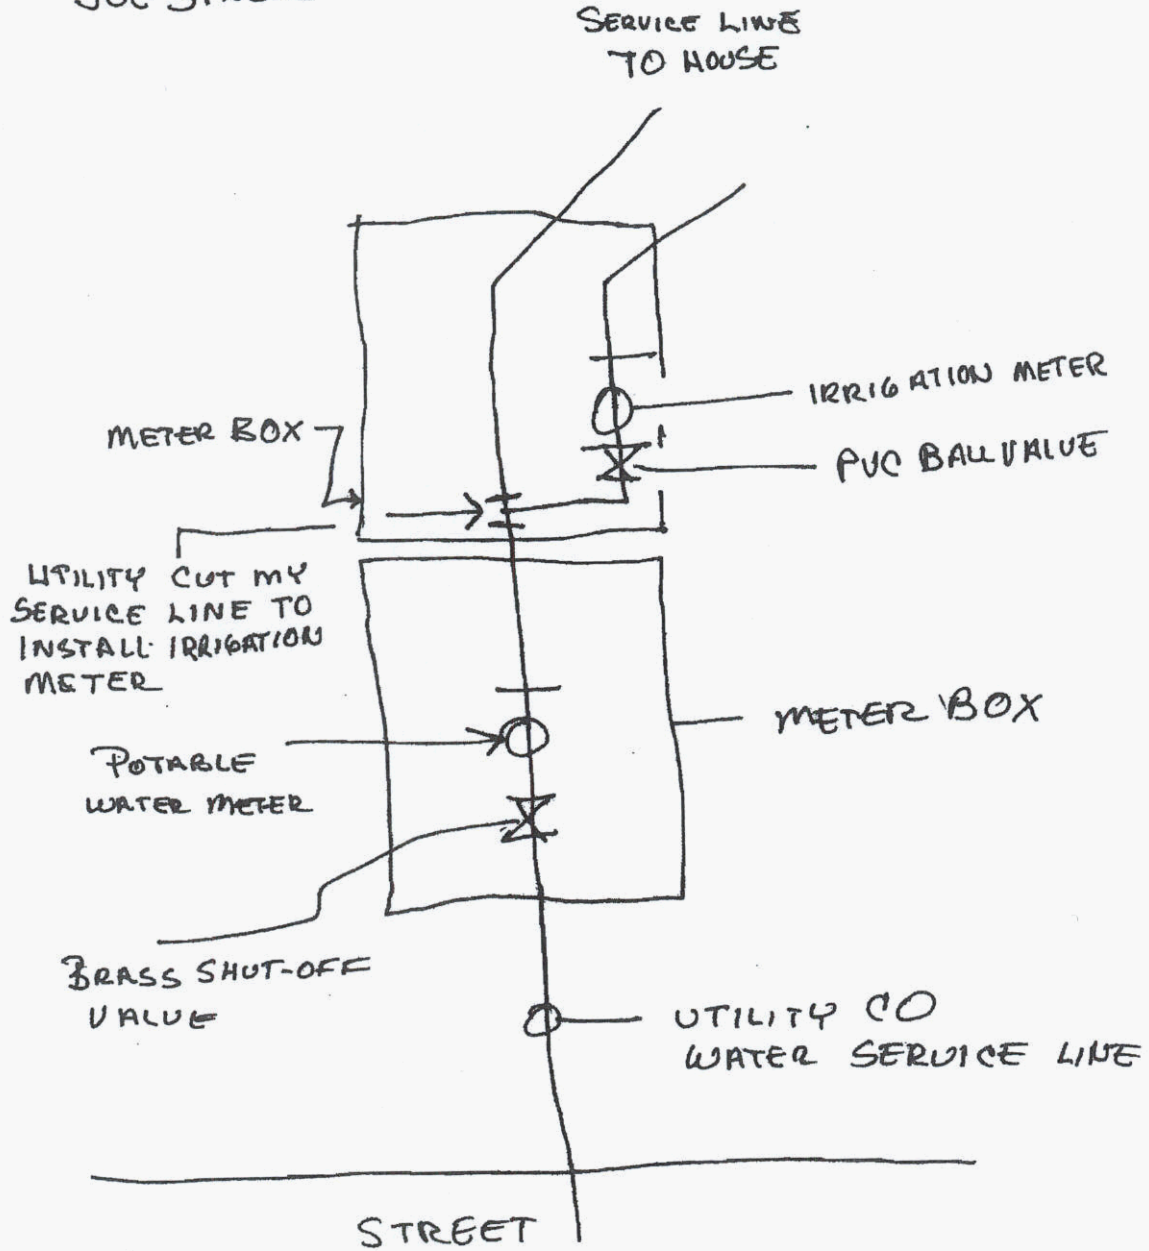 SERVICE LINE
TO HOUSE
IRRIGATION METER
METER BOX
PVC BALL VALUE
UTILITY CUT MY
SERVICE LINE TO
INSTALL IRRIGATION
METER
METER BOX
POTABLE
WATER METER
BRASS SHUT-OFF
VALUE
UTILITY CO
WATER SERVICE LINE
STREET